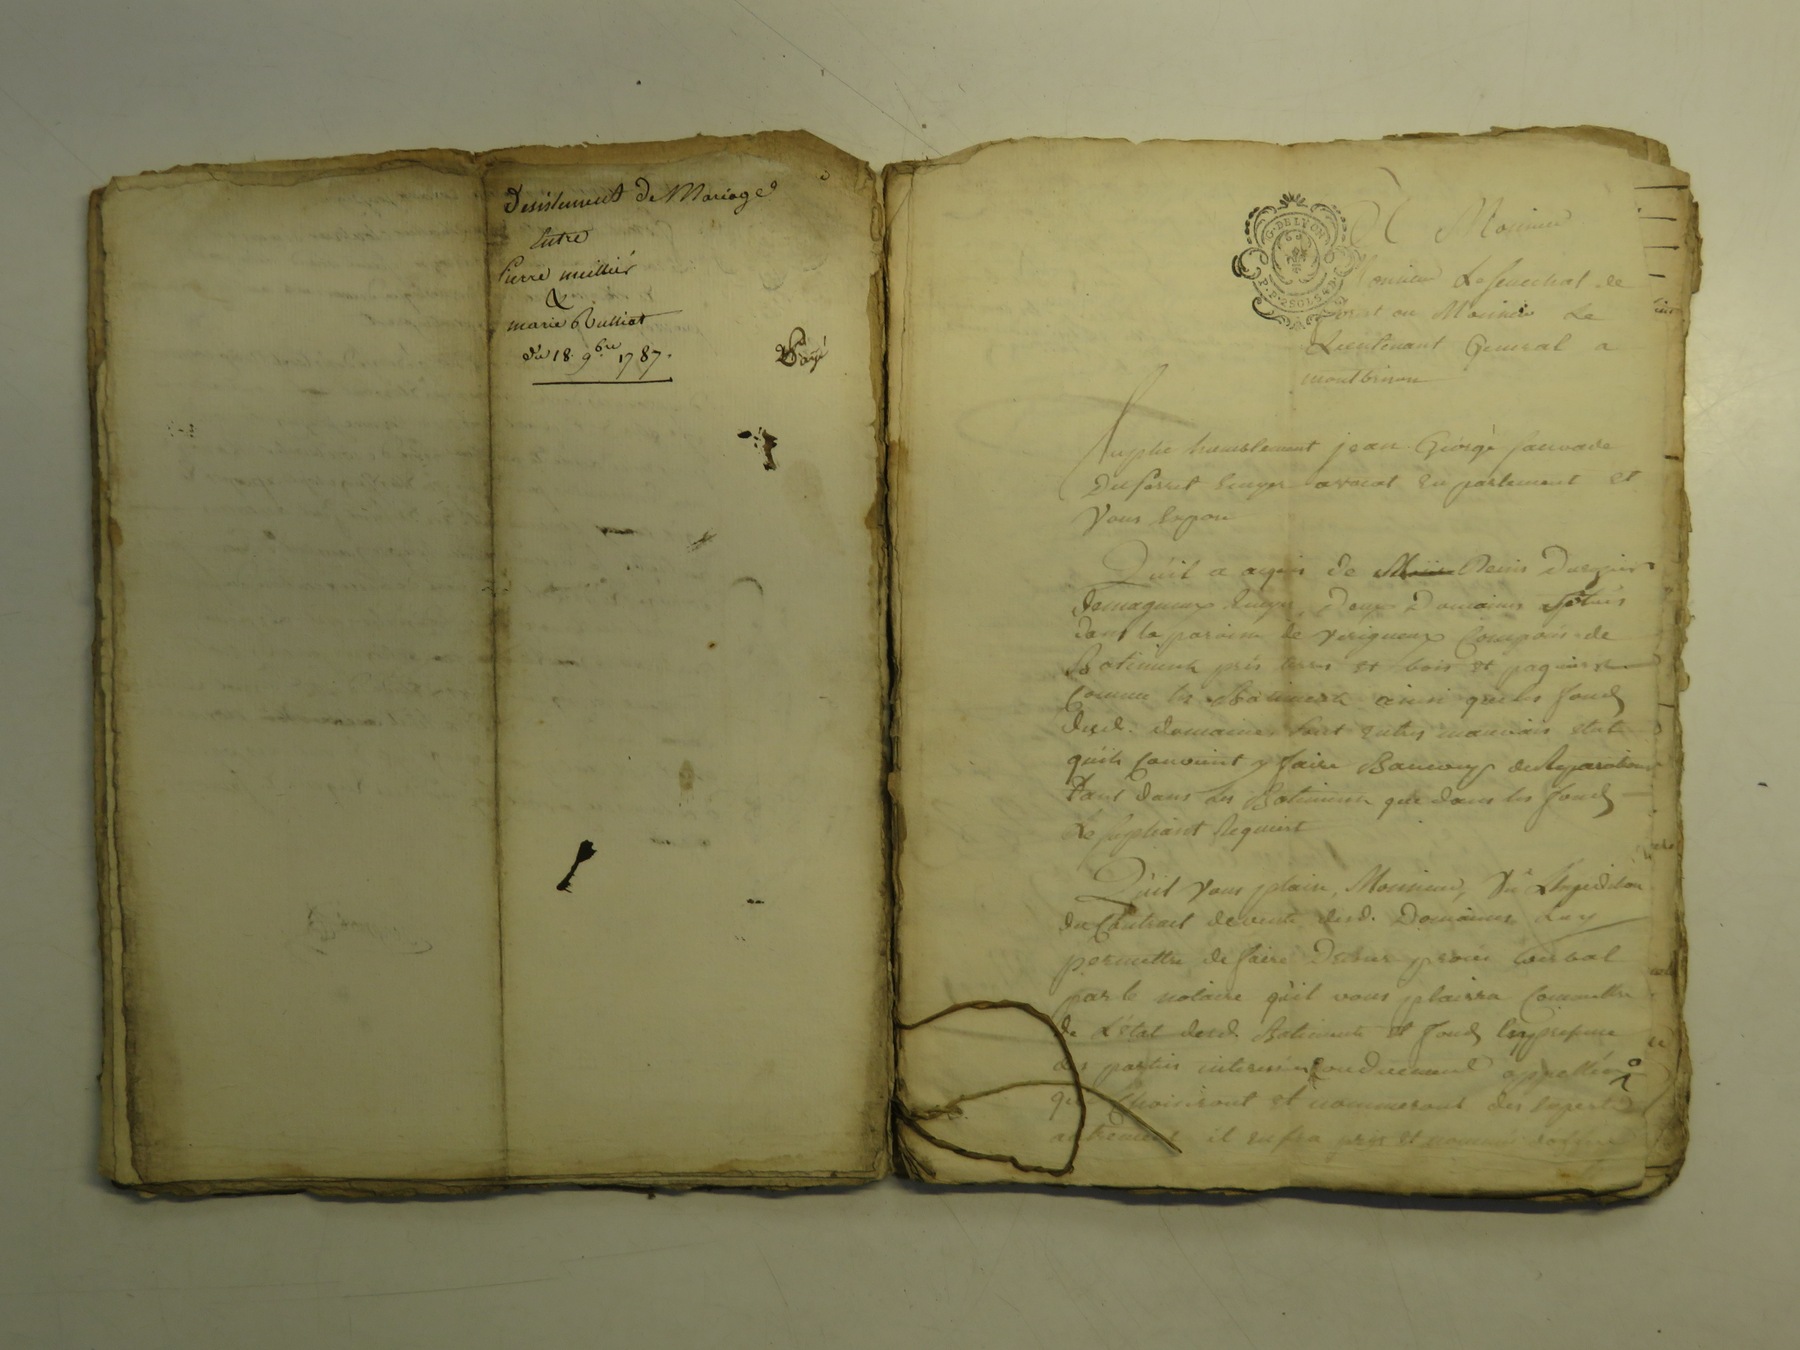 Desistement De Mariage
Entre
Pierre meillier
&
marie Rulliat
du 18. 9bre 1787.
Payé
G. DE LYON
P. P. 2 SOLS 4 D.
A Monsieur
Monsieur Le Senechal de
forest ou Monsieur Le
Lieutenant General a
montbrison
Suplie humblement jean George sauvade
Duperret Ecuyer avocat En parlement Et
Vous Expose
Qu'il a aquis de Denis
Ecuyer, Deux Domaines Situés
dans la paroisse de verigneux Composés de
Batiments prés terres Et bois Et paquiers
Comme les Batiments ainsi que les fonds
desd. domaines sont En tres mauvais Etat
qu'ils Convient y faire Baucoup de Reparations
Tant Dans les Batiments que dans les fonds
Le supliant Requiert
Qu'il Vous plaise, Monsieur, Vu L'Expedition
du Contract de vente desd. Domaines Luy
permettre de faire Dresser procés verbal
par le notaire qu'il vous plaira Commettre
de L'état desd. Batiments Et fonds En presence
des parties interessées ou duement appellées
qui Choisiront Et nommeront des Experts
autrement il en sera pris Et nommés d'office